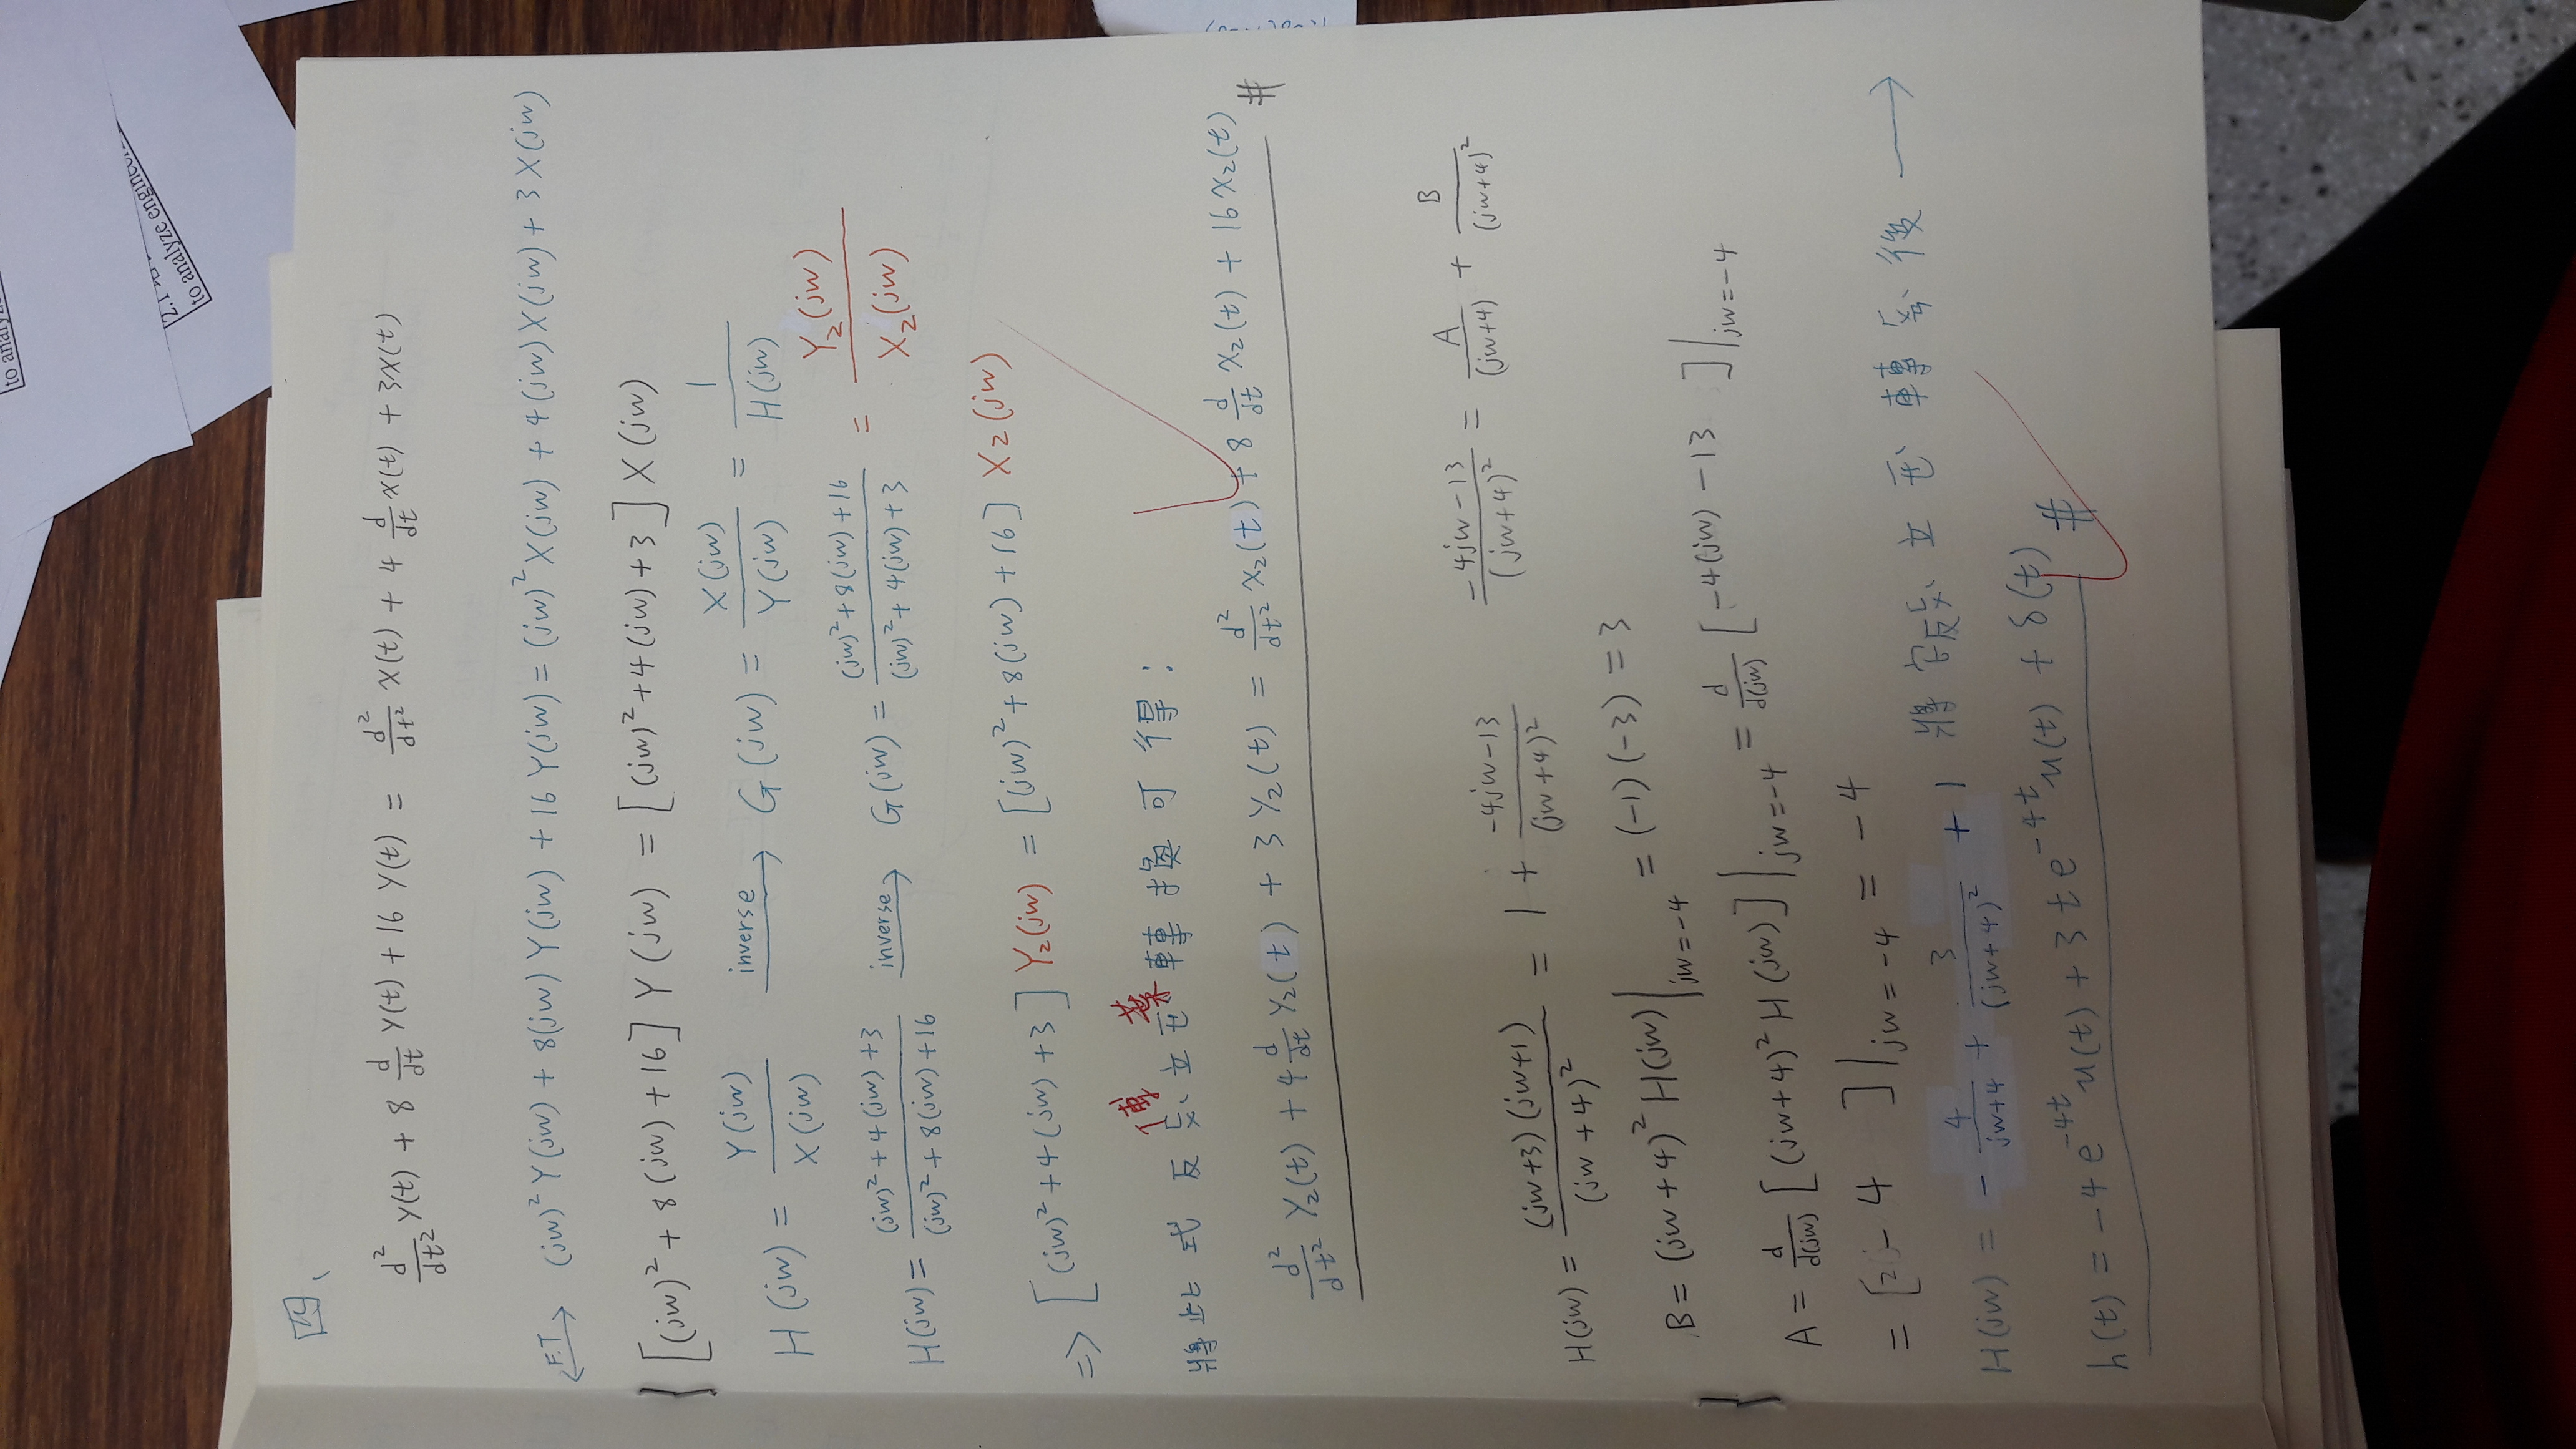 to analyz
2.1
to analyze engineer
四、
d²/dt² y(t) + 8 d/dt y(t) + 16 y(t) = d²/dt² x(t) + 4 d/dt x(t) + 3x(t)
F.T ⟷ (jw)² Y(jw) + 8(jw) Y(jw) + 16 Y(jw) = (jw)² X(jw) + 4(jw) X(jw) + 3 X(jw)
[(jw)² + 8(jw) + 16] Y(jw) = [(jw)² + 4(jw) + 3] X(jw)
H(jw) = Y(jw)/X(jw) inverse → G(jw) = X(jw)/Y(jw) = 1/H(jw)
H(jw) = ((jw)² + 4(jw) + 3)/((jw)² + 8(jw) + 16) inverse → G(jw) = ((jw)² + 8(jw) + 16)/((jw)² + 4(jw) + 3) = Y₂(jw)/X₂(jw)
=> [(jw)² + 4(jw) + 3] Y₂(jw) = [(jw)² + 8(jw) + 16] X₂(jw)
傅 葉
將此式反 立 轉換可得:
d²/dt² y₂(t) + 4 d/dt y₂(t) + 3 y₂(t) = d²/dt² x₂(t) + 8 d/dt x₂(t) + 16 x₂(t) #
H(jw) = (jw+3)(jw+1)/(jw+4)² = 1 + (-4jw-13)/(jw+4)² (-4jw-13)/(jw+4)² = A/(jw+4) + B/(jw+4)²
B = (jw+4)² H(jw)|jw=-4 = (-1)(-3) = 3
A = d/d(jw) [(jw+4)² H(jw)]|jw=-4 = d/d(jw) [-4(jw) - 13]|jw=-4
= [-4]|jw=-4 = -4
H(jw) = - 4/(jw+4) + 3/(jw+4)² + 1 將它反 立 轉 後 →
h(t) = -4e^-4t u(t) + 3te^-4t u(t) + δ(t) #